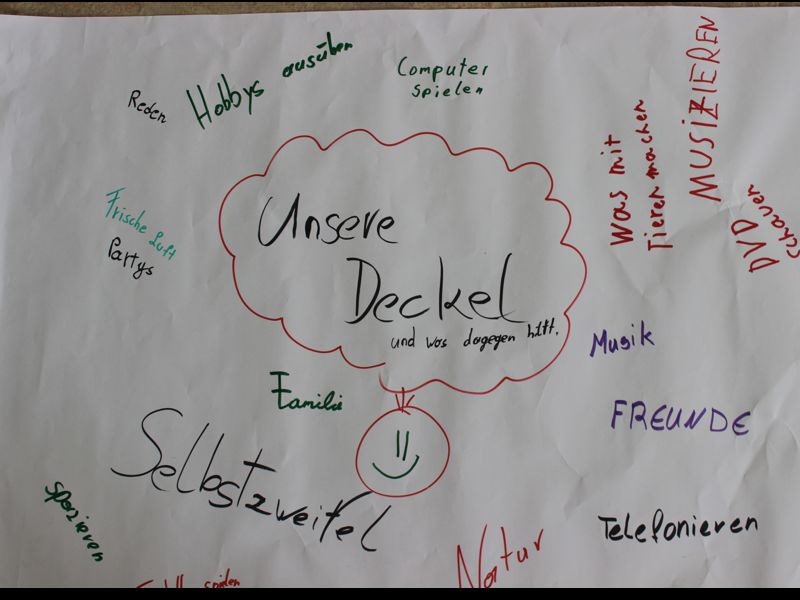 Reden
Hobbys ausüben
Computer
spielen
Was mit
Tieren machen
MUSIZIEREN
DVD
schauen
Frische Luft
Partys
Unsere
Deckel
und was dagegen hilft.
Musik
Familie
FREUNDE
Selbstzweifel
spazieren
Telefonieren
Natur
spielen